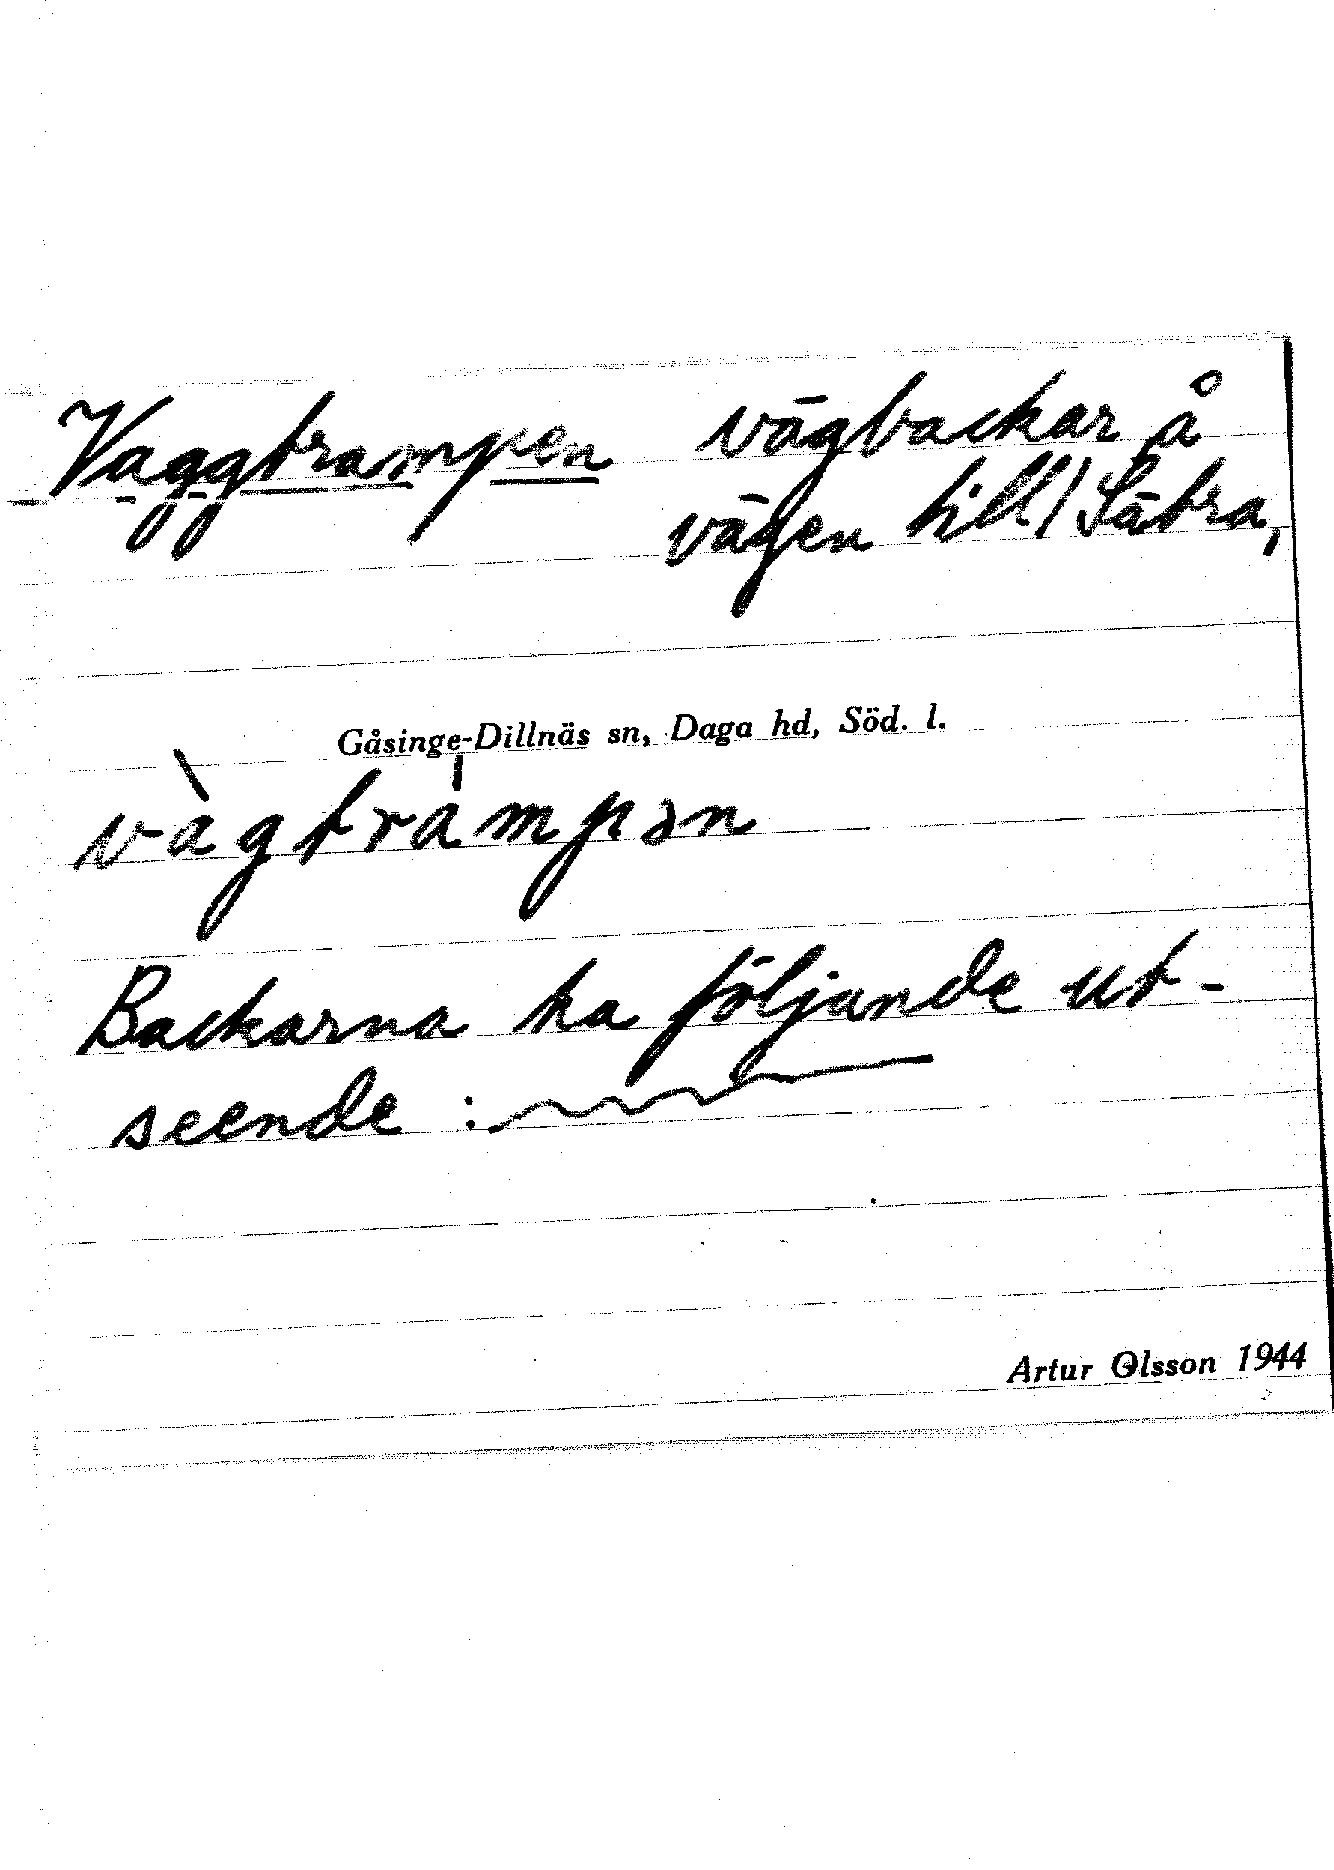 Vaggtrampen vägbackar å
vägen till/ Sätra,
Gåsinge-Dillnäs sn, Daga hd, Söd. l.
vàgtrámpən
Backarna ha följande ut-
seende :
Artur Olsson 1944